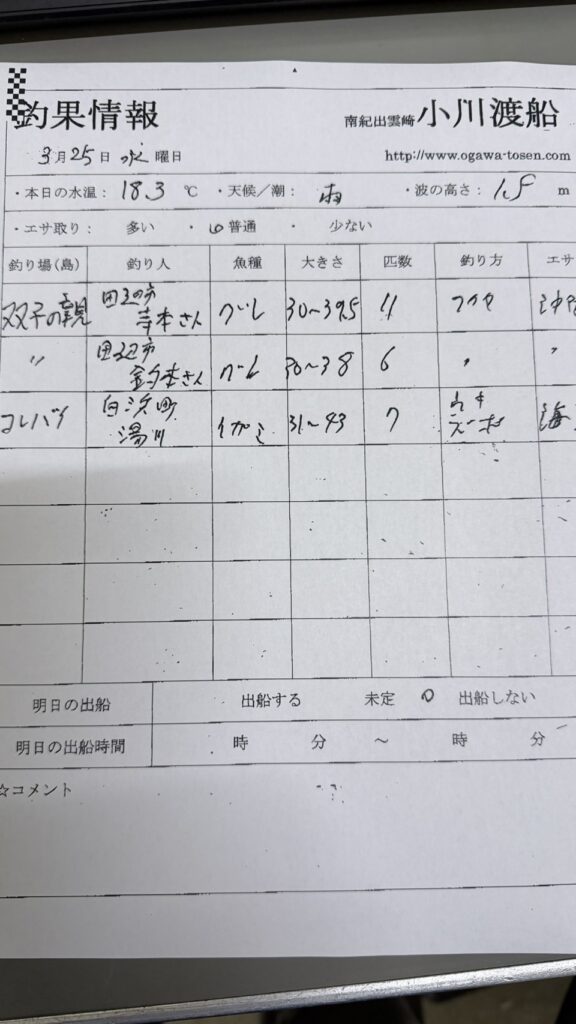 釣果情報 南紀出雲崎 小川渡船
3月25日 水曜日 http://www.ogawa-tosen.com
・本日の水温： 18.3 ℃ ・天候／潮： 雨 ・波の高さ： 1.5 m
・エサ取り： 多い ・ 普通 ・ 少ない
釣り場(島) 釣り人 魚種 大きさ 匹数 釣り方 エサ
双子の親 田辺市 寺本さん グレ 30～39.5 11 フカセ
〃 田辺市 鈴木さん グレ 30～38 6 〃 〃
コレバイ 白浜町 湯川 イガミ 31～43 7 ウキ 海
明日の出船 出船する 未定 出船しない
明日の出船時間 時 分 ～ 時 分
☆コメント